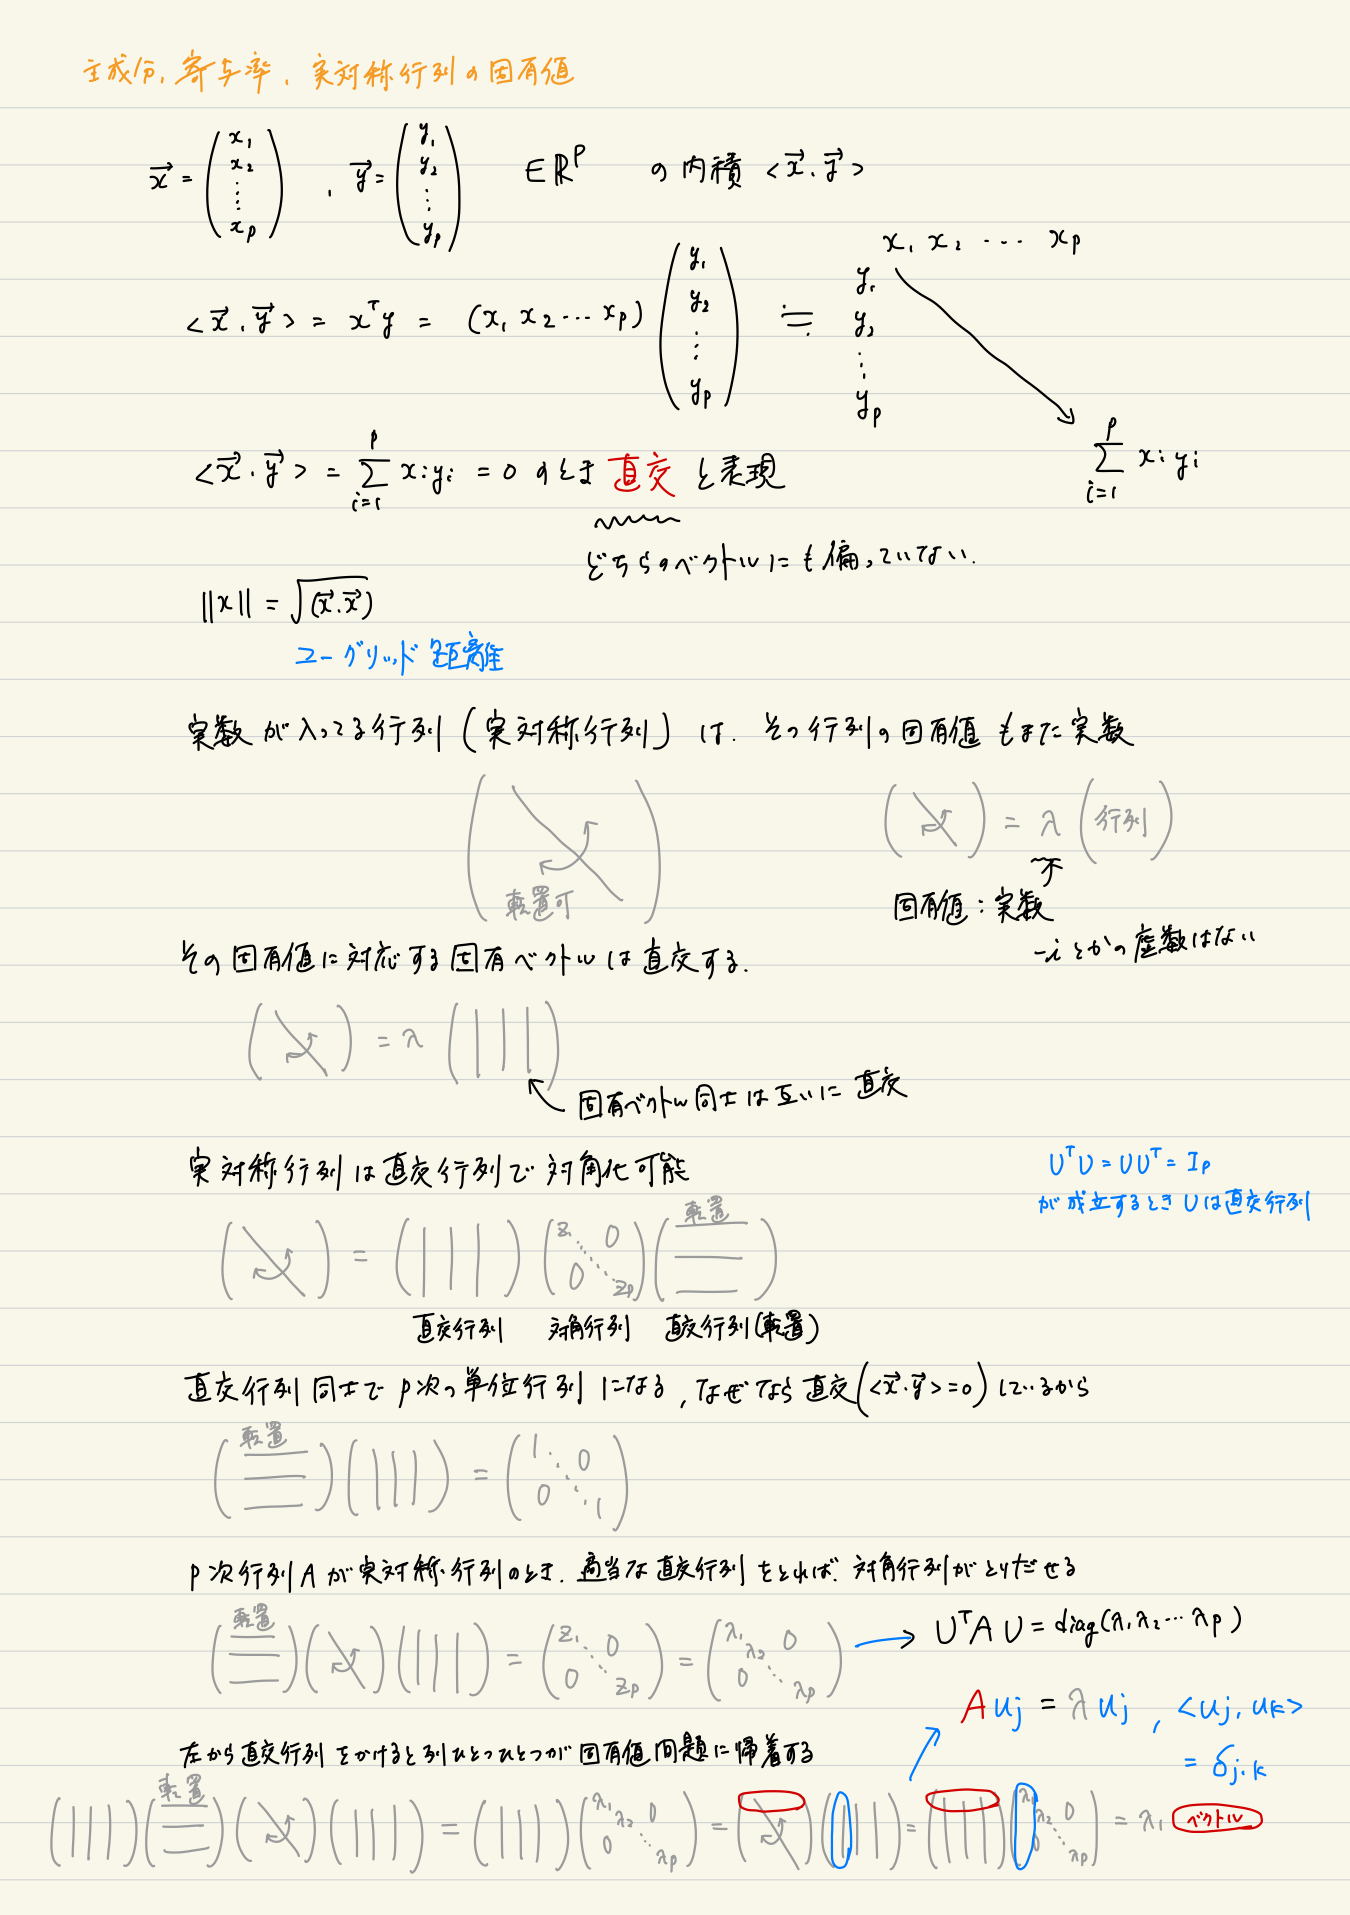 主成分、寄与率、実対称行列の固有値
x⃗ = (x₁ x₂ ⋮ xₚ) , y⃗ = (y₁ y₂ ⋮ yₚ) ∈ℝᵖ の内積 <x⃗, y⃗>
<x⃗, y⃗> = xᵀy = (x₁ x₂ ⋯ xₚ) (y₁ y₂ ⋮ yₚ) ≒
x₁ x₂ ⋯ xₚ
y₁
y₂
⋮
yₚ
p
Σ xᵢyᵢ
i=1
<x⃗, y⃗> = Σᵢ₌₁ᵖ xᵢyᵢ = 0 のとき 直交 と表現
どちらのベクトルにも偏っていない.
||x|| = √(x⃗, x⃗)
ユーグリッド距離
実数が入ってる行列(実対称行列)は、その行列の固有値もまた実数
転置可
= λ (行列)
固有値:実数
-iとかの虚数はない
その固有値に対応する固有ベクトルは直交する.
= λ
固有ベクトル同士は互いに直交
実対称行列は直交行列で対角化可能
UᵀU = UUᵀ = Iₚ
が成立するときUは直交行列
転置
= (z₁ 0 0 zₚ)
直交行列 対角行列 直交行列(転置)
直交行列同士でp次の単位行列になる, なぜなら直交(<x⃗, y⃗>=0)しているから
転置
= (1 0 0 1)
p次行列Aが実対称行列のとき、適当な直交行列をとれば、対角行列がとりだせる
転置
= (z₁ 0 0 zₚ) = (λ₁ λ₂ 0 0 λₚ) → UᵀAU = diag(λ₁λ₂⋯λₚ)
Auⱼ = λuⱼ , <uⱼ, uₖ>
= δⱼ,ₖ
左から直交行列をかけると列ひとつひとつが固有値問題に帰着する
転置
= (λ₁ λ₂ 0 0 λₚ) = = (λ₁ λ₂ 0 0 λₚ) = λ₁ ベクトル